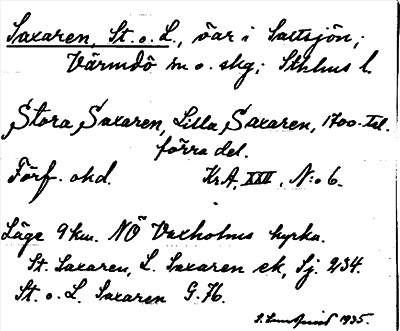 Saxaren, St. o. L., öar i Saltsjön;
Värmdö m. o. skg; Sthlms l.
Stora Saxaren, Lilla Saxaren, 1700-tal.
förra del.
Förf. okd. KrA, XXII, N:o 6.
Läge 9 km. NÖ Vaxholms kyrka.
St. Saxaren, L. Saxaren ek, Sj. 234.
St. o. L. Saxaren G. 76.
1935.